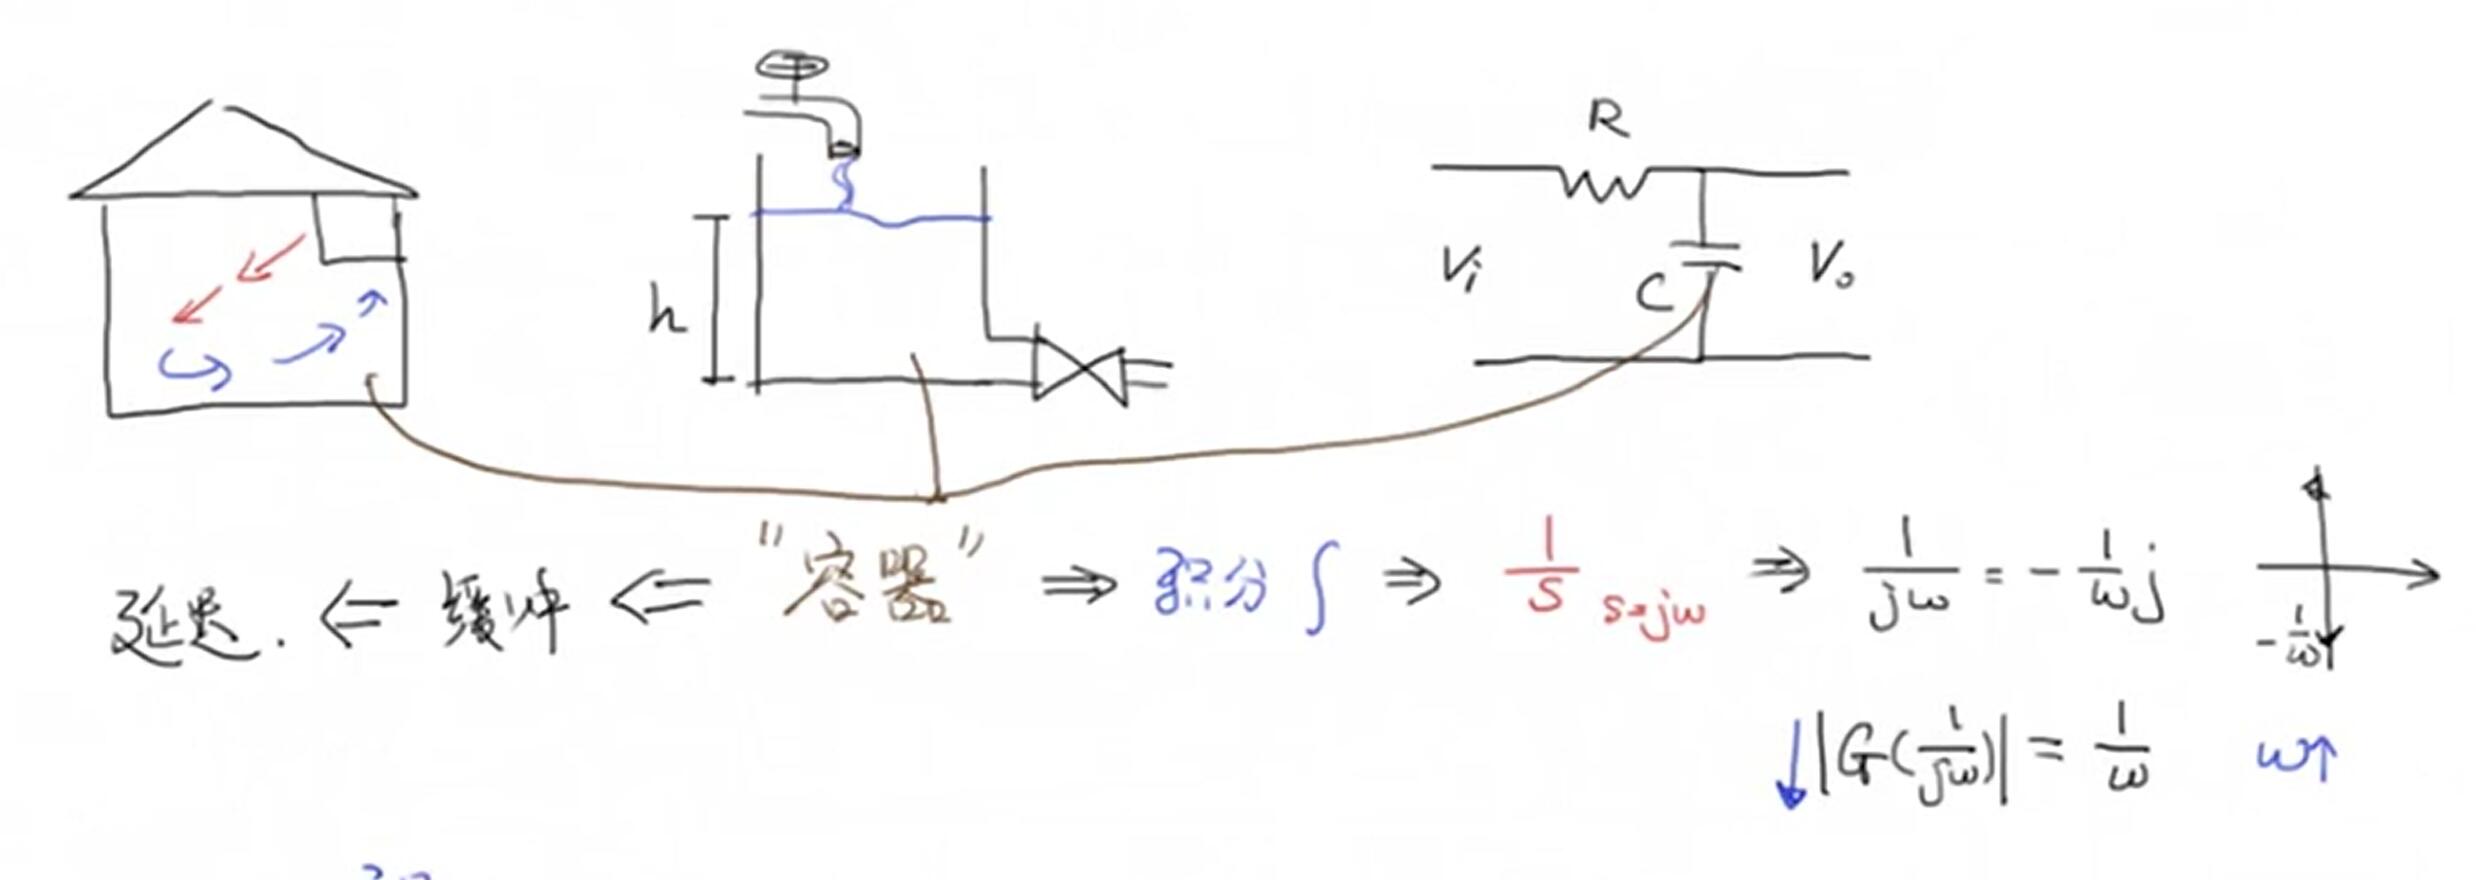 R
h
Vi
C
Vo
延迟. ⇐ 缓冲 ⇐ "容器" ⇒ 积分 ∫ ⇒ 1/s s=jω ⇒ 1/jω = - 1/ω j
- 1/ω
↓ |G(1/jω)| = 1/ω ω↑